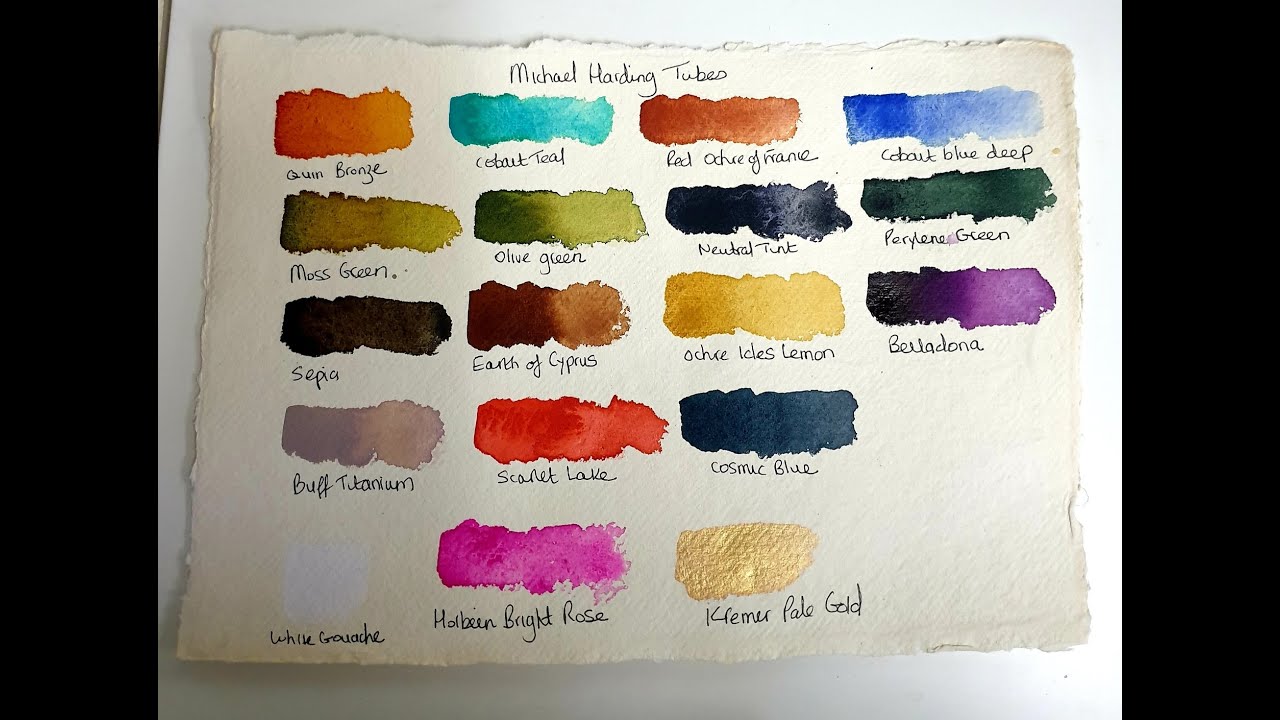 Michael Harding Tubes
Quin Bronze
Cobalt Teal
Red Ochre of France
Cobalt blue deep
Moss Green.
Olive green
Neutral Tint
Perylene Green
Sepia
Earth of Cyprus
Ochre Icles Lemon
Belladona
Buff Titanium
Scarlet Lake
Cosmic Blue
White Gouache
Holbein Bright Rose
Kremer Pale Gold